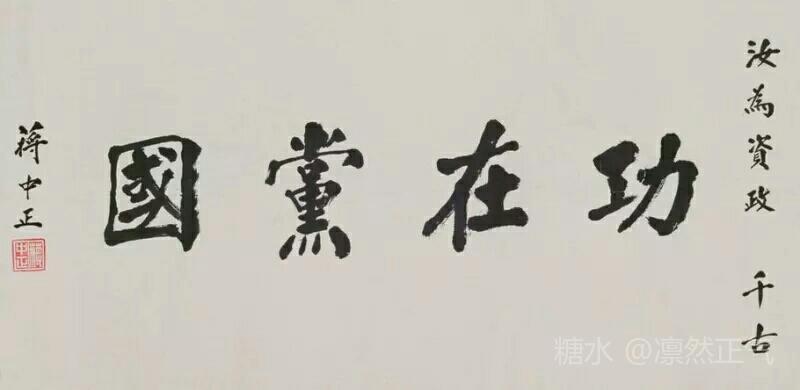 汝為資政　千古
功在黨國
蔣中正
蔣中正
糖水 @凛然正气